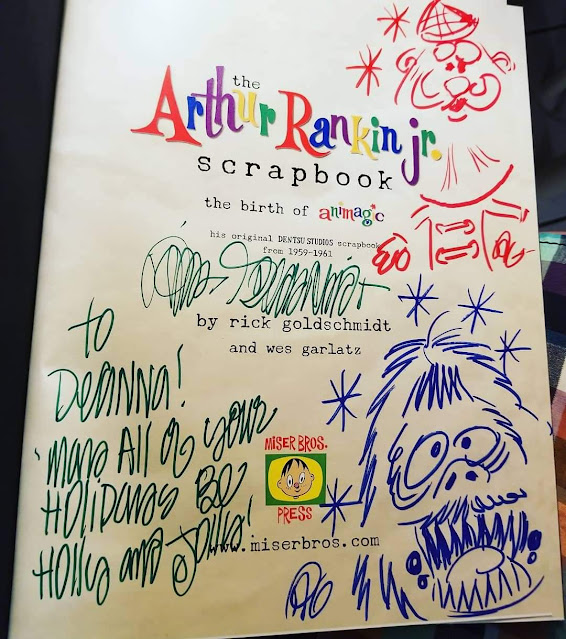 the
Arthur Rankin jr.
scrapbook
the birth of animagic
his original DENTSU STUDIOS scrapbook
from 1959-1961
by rick goldschmidt
and wes garlatz
to
DEANNA!
MAY All of your
HOLIDAYS BE
Holly and Jolly!
MISER BROS.
PRESS
www.miserbros.com